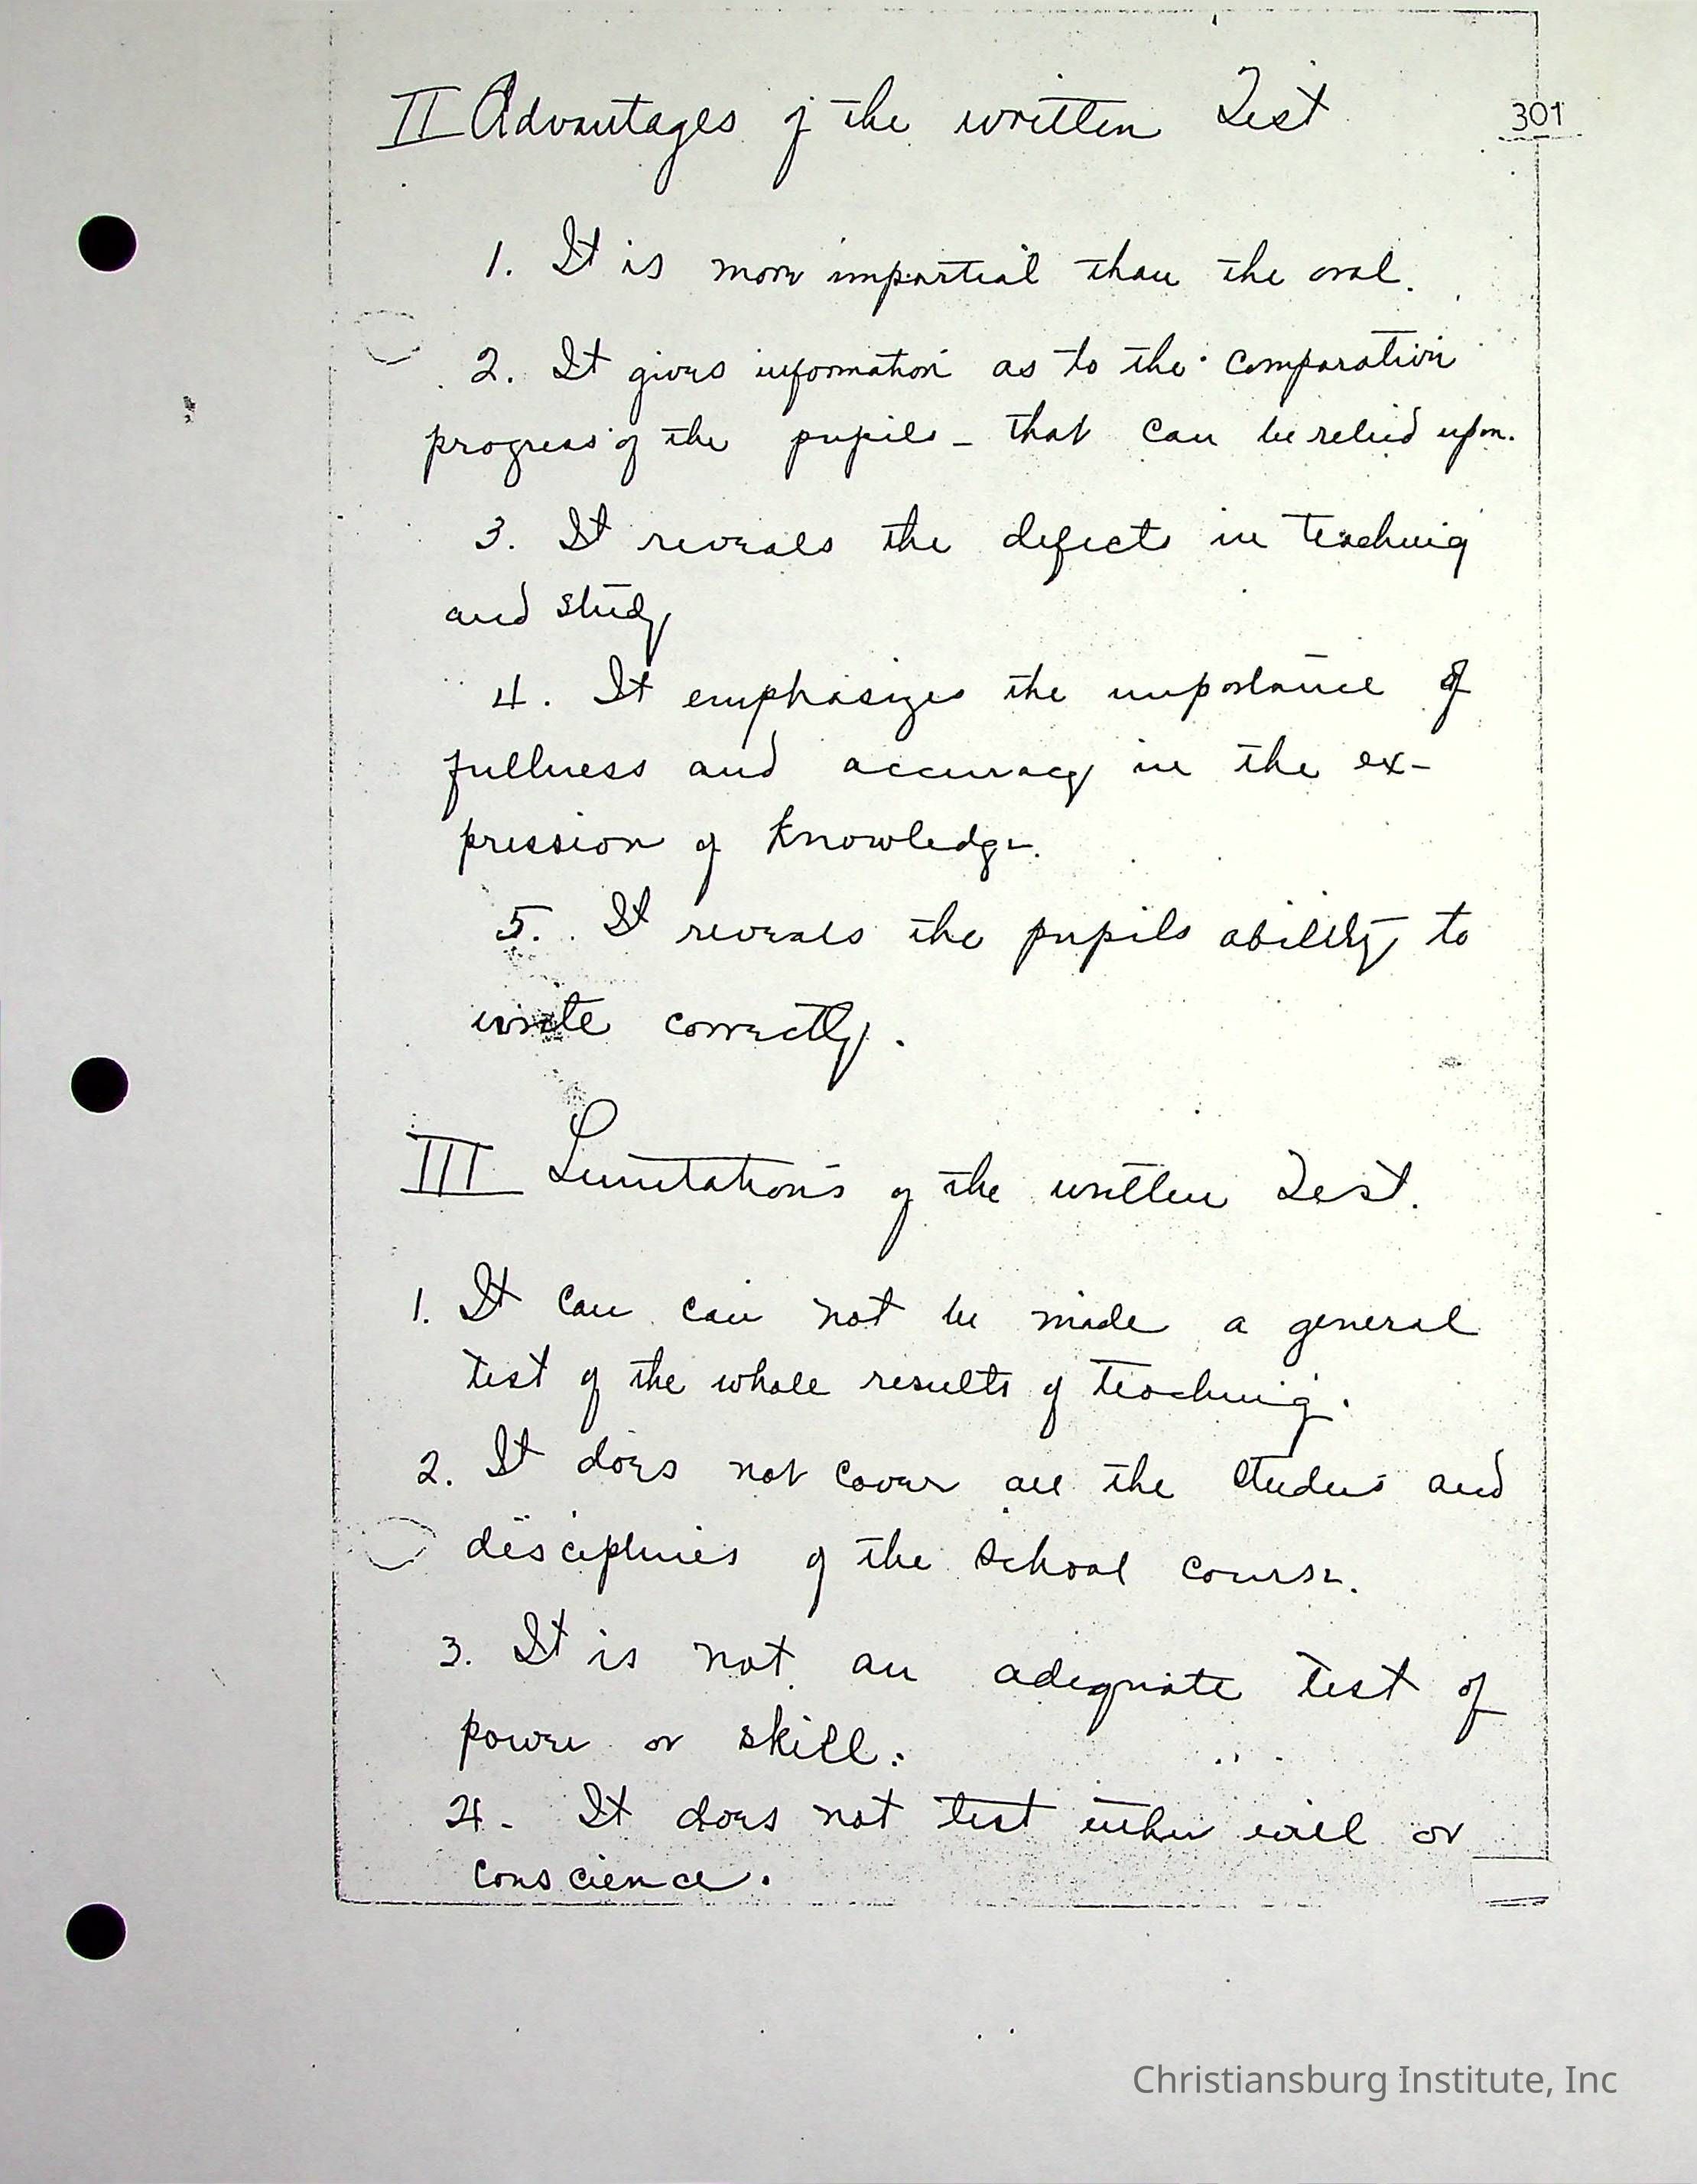 II Advantages of the written Test
301
1. It is more impartial than the oral.
2. It gives information as to the comparative
progress of the pupils - that can be relied upon.
3. It reveals the defects in teaching
and study
4. It emphasizes the importance of
fullness and accuracy in the ex-
pression of knowledge.
5. It reveals the pupils ability to
write correctly.
III Limitations of the written Test.
1. It can can not be made a general
test of the whole results of teaching.
2. It does not cover all the studies and
disciplines of the school course.
3. It is not an adequate test of
power or skill.
4. It does not test either will or
conscience.
Christiansburg Institute, Inc